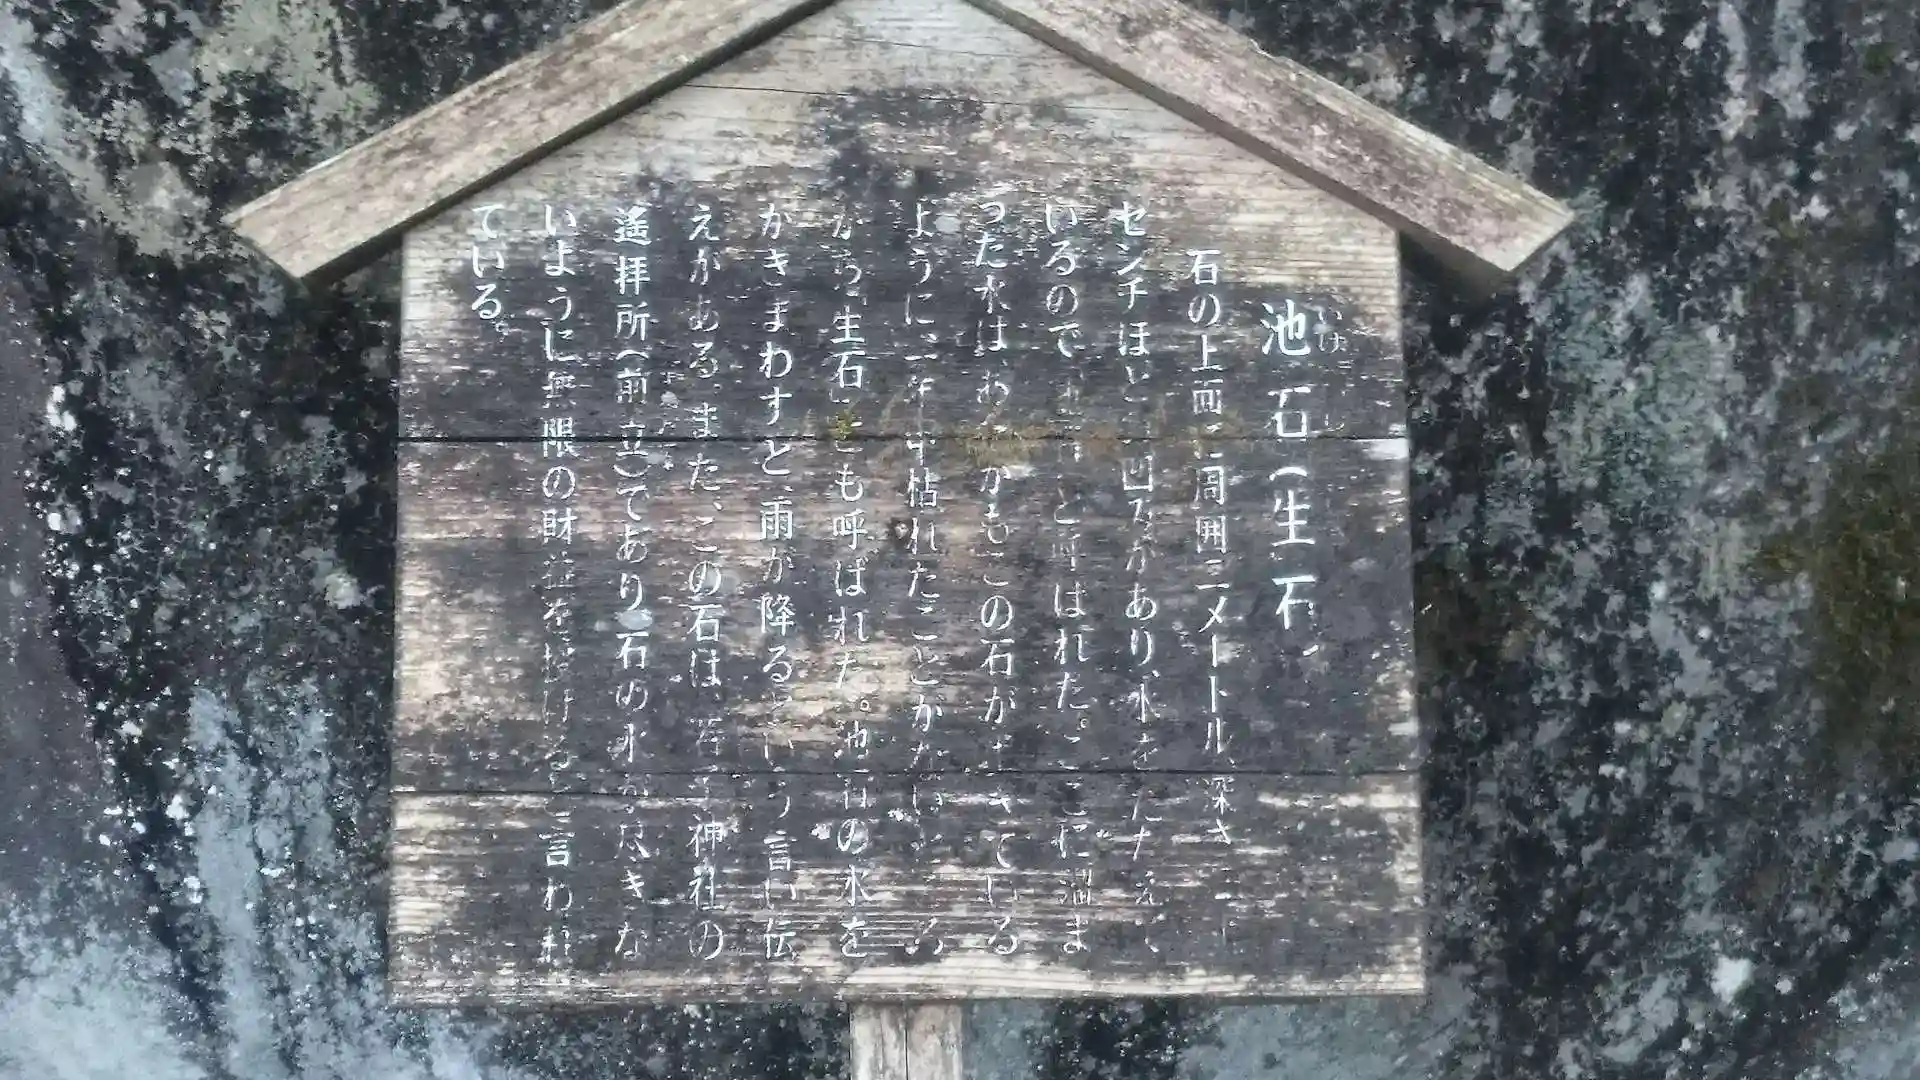 池石(生石)
いけいし
石の上面に周囲三メートル、深さ二十
センチほどの凹みがあり、水をたたえて
いるので池石と呼ばれた。ここに溜ま
った水は、あたかもこの石が生きている
ように、一年中枯れたことがないところ
から生石とも呼ばれた。池石の水を
かきまわすと、雨が降るという言い伝
えがある。また、この石は、神社の
遙拝所(前立)であり、石の水が尽きな
いように無限の財益を授けると言われ
ている。